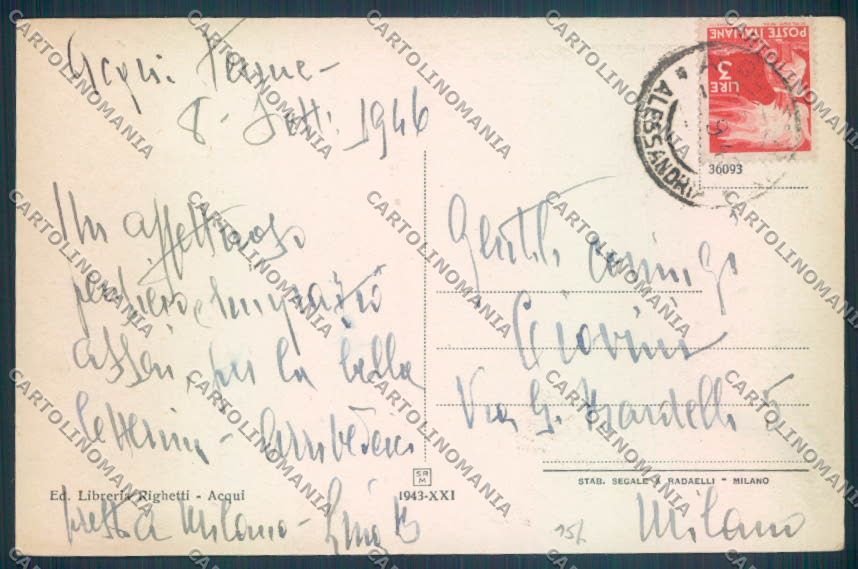 Acqui Terme -
8. Sett. 1946
Un affettuoso
pensiero e ringrazio
assai per la bella
letterina - Arrivederci
presto a Milano - 
Ed. Libreria Righetti - Acqui
SR
M
1943-XXI
POSTE ITALIANE
LIRE 3
ALESSANDRIA
36093
Gentile
Via G. Zanardelli 5
Milano
STAB. SEGALE & RADAELLI - MILANO
15/
CARTOLINOMANIA